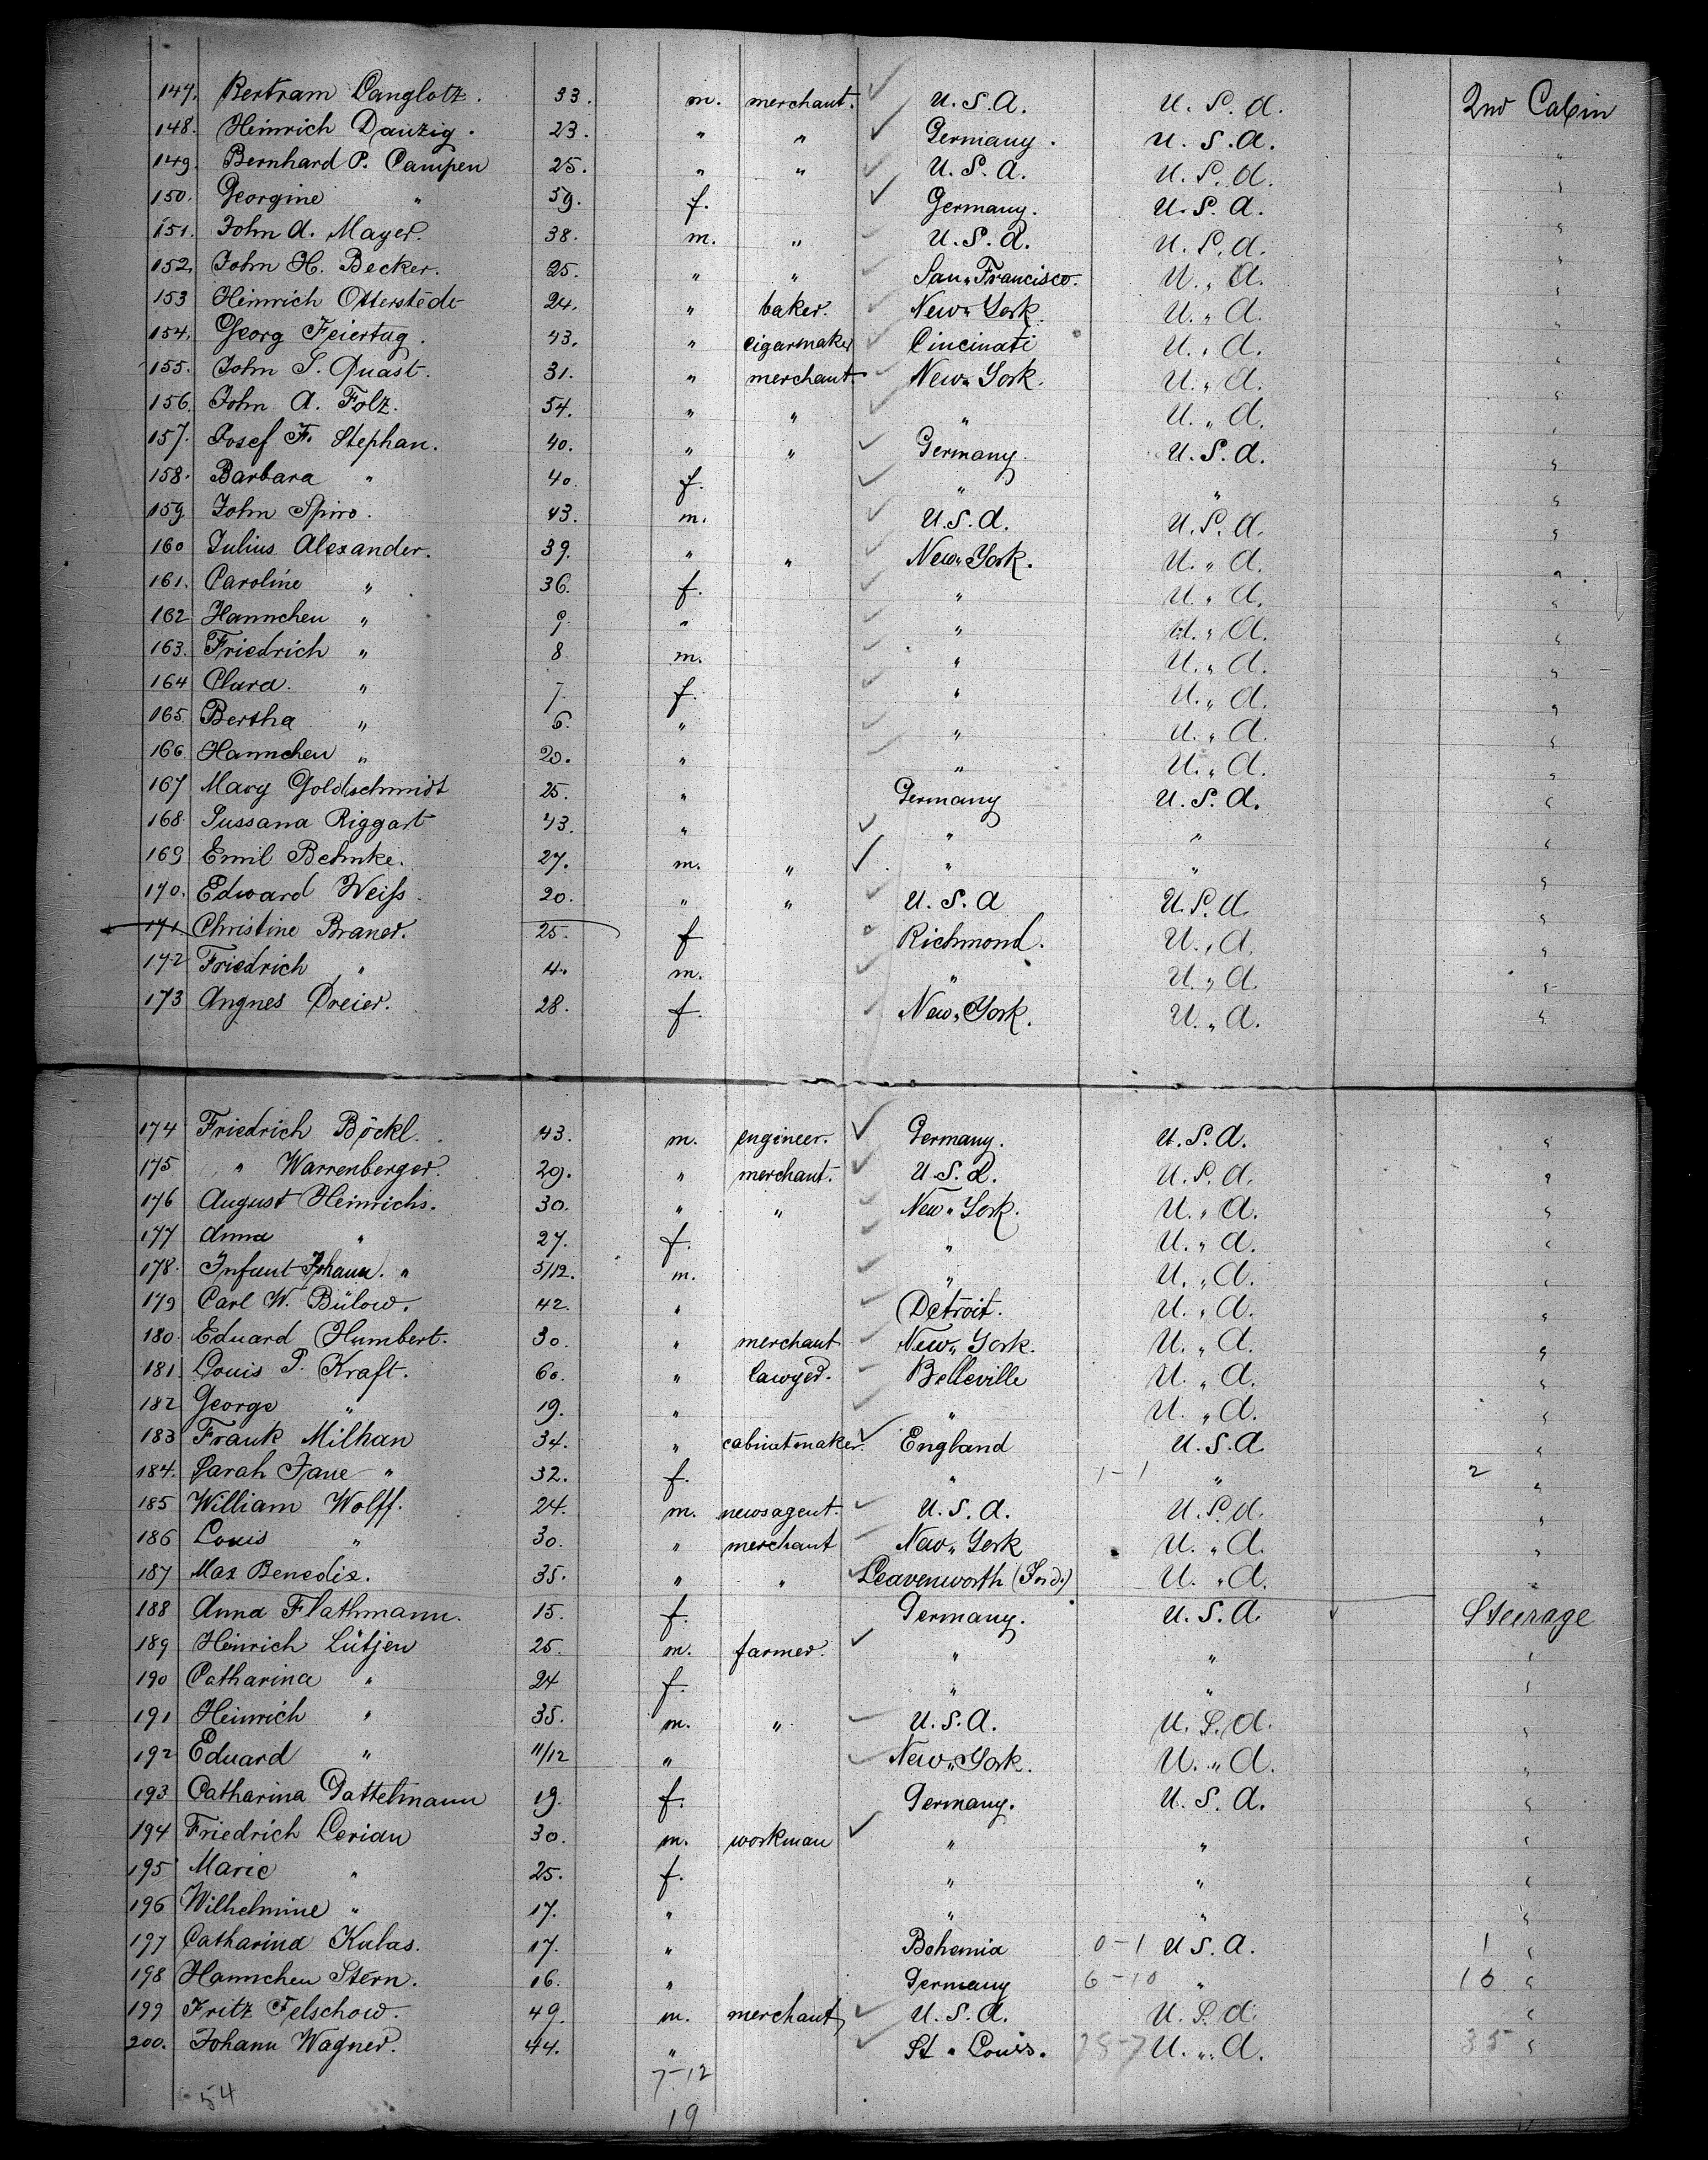 147. Bertram Langlotz. 33. m. merchant. U.S.A. U.S.A. 2nd Cabin
148. Heinrich Danzig. 23. " " Germany. U.S.A. "
149. Bernhard P. Campen 25. " " U.S.A. U.S.A. "
150. Georgine " 59. f. Germany. U.S.A. "
151. John A. Mayer. 38. m. " U.S.A. U.S.A. "
152. John H. Becker. 25. " " San "Francisco. U. " A. "
153 Heinrich Otterstedt 24. " baker. New "York. U. " A. "
154. Georg Feiertag. 43. " cigarmaker Cincinati U. " A. "
155. John S. Quast. 31. " merchant. New "York. U. " A. "
156. John A. Folz. 54. " " " U. " A. "
157. Josef F. Stephan. 40. " " Germany. U.S.A. "
158. Barbara " 40. f. " " "
159. John Spiro. 43. m. U.S.A. U.S.A. "
160 Julius Alexander. 39. " " New "York. U. " A. "
161. Caroline " 36. f. " U. " A. "
162 Hannchen " 9 " " U. " A. "
163. Friedrich " 8 m. " U. " A. "
164 Clara. " 7. f. " U. " A. "
165. Bertha " 6. " " U. " A. "
166. Hannchen " 20. " " U. " A. "
167 Mary Goldschmidt 25. " Germany U.S.A. "
168. Sussana Riggart 43. " " " "
169 Emil Behnke. 27. m. " " " "
170. Edward Weiss. 20. " " U.S.A U.S.A. "
171. Christine Braner. 25. f Richmond. U. " A. "
172 Friedrich " 4. m. " U. " A. "
173 Angnes Dreier. 28. f. New "York. U. " A. "
174 Friedrich Böckl. 43. m. engineer. Germany. U.S.A. "
175 " Warrenberger. 29. " merchant. U.S.A. U.S.A. "
176 August Heinrichs. 30. " " New "York. U. " A. "
177 Anna " 27. f. " U. " A. "
178. Infant Johann. " 5/12. m. " U. " A. "
179 Carl W. Bülow. 42. " Detroit. U. " A. "
180. Eduard Humbert. 30. " merchant New "York. U. " A. "
181. Louis P. Kraft. 60. " lawyer. Belleville U. " A. "
182 George " 19. " " U. " A. "
183 Frank Milhan 34. " cabinetmaker. England U.S.A "
184. Sarah Jane " 32. f. " 1-1 " 2 "
185 William Wolff. 24. m. newsagent. U.S.A. U.S.A. "
186 Louis " 30. " merchant New "York U. " A. "
187 Max Benedix. 35. " " Leavenworth (Ind.) U. " A. "
188 Anna Flathmann. 15. f. Germany. U.S.A. Steerage
189 Heinrich Lütjen 25. m. farmer. " " "
190 Catharina " 24 f. " " "
191 Heinrich " 35. m. " U.S.A. U.S.A. "
192 Eduard " 11/12 " New "York. U. " A. "
193 Catharina Dattelmann 19. f. Germany. U.S.A. "
194 Friedrich Lerian 30. m. workman " " "
195 Marie " 25. f. " " "
196 Wilhelmine " 17. " " " "
197 Catharina Kulas. 17. " Bohemia 0-1 U.S.A. 1 "
198 Hannchen Stern. 16. " Germany 6-10 " 16 "
199 Fritz Felschow. 49. m. merchant U.S.A. U.S.A. "
200. Johann Wagner. 44. " St " Louis. 28-7 U. " A. 35 "
7-12
54
19